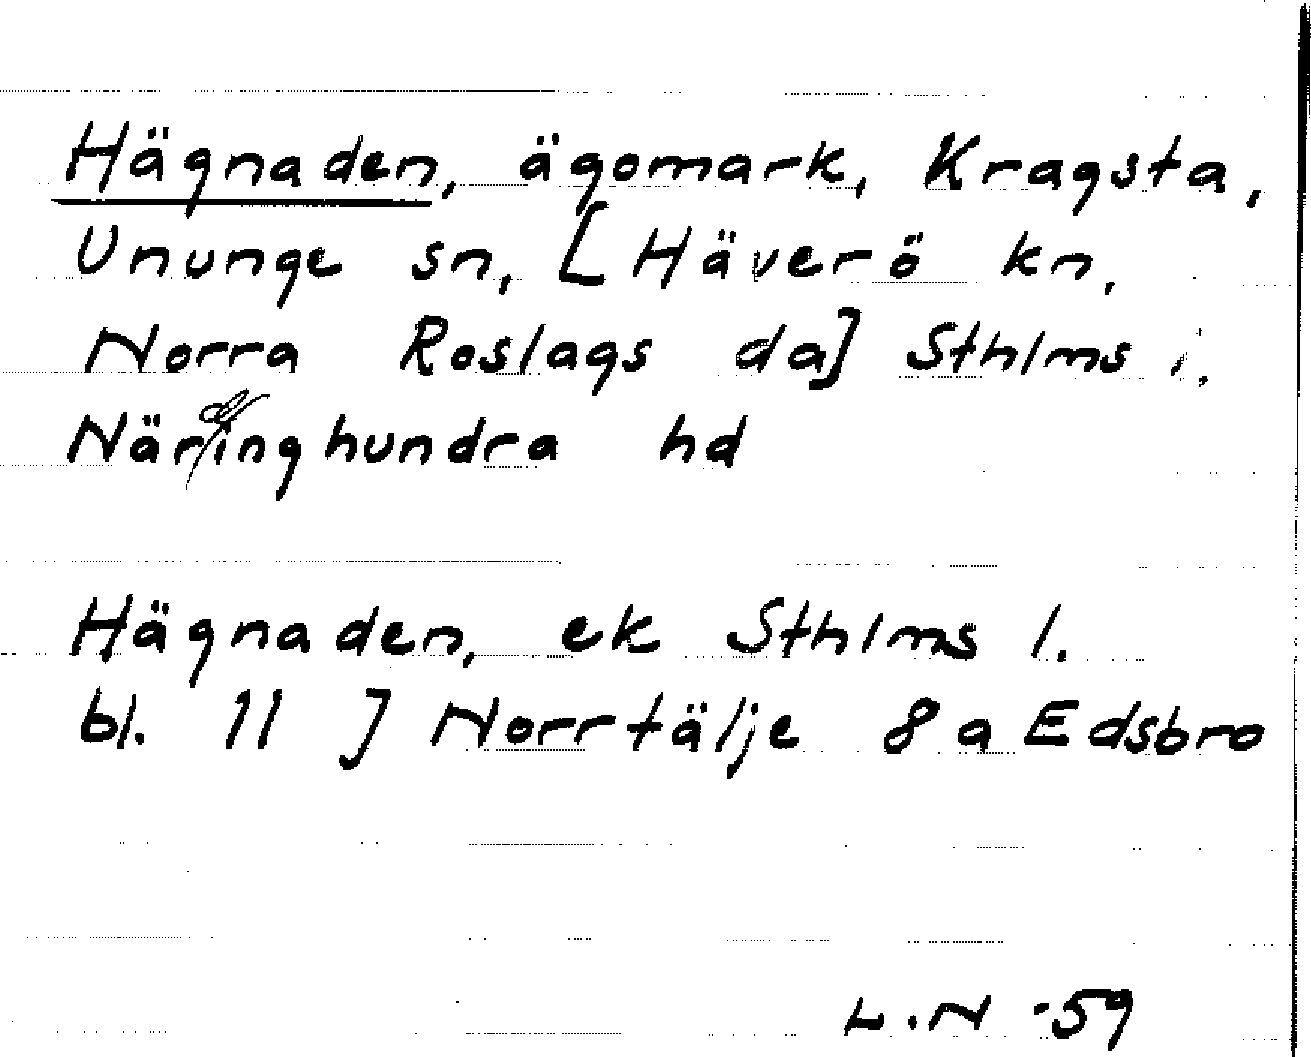 Hägnaden, ägomark, Kragsta,
Ununge sn, [Häverö kn,
Norra Roslags da] Sthlms l.
Närdinghundra hd
Hägnaden, ek Sthlms l.
bl. 11 J Norrtälje 8a Edsbro
L.N -59